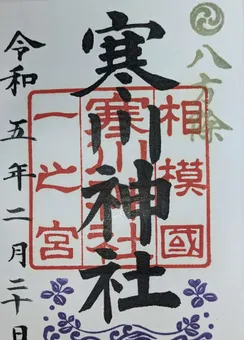 八方除
相模國
寒川神社
一之宮
寒川神社
令和五年二月二十日